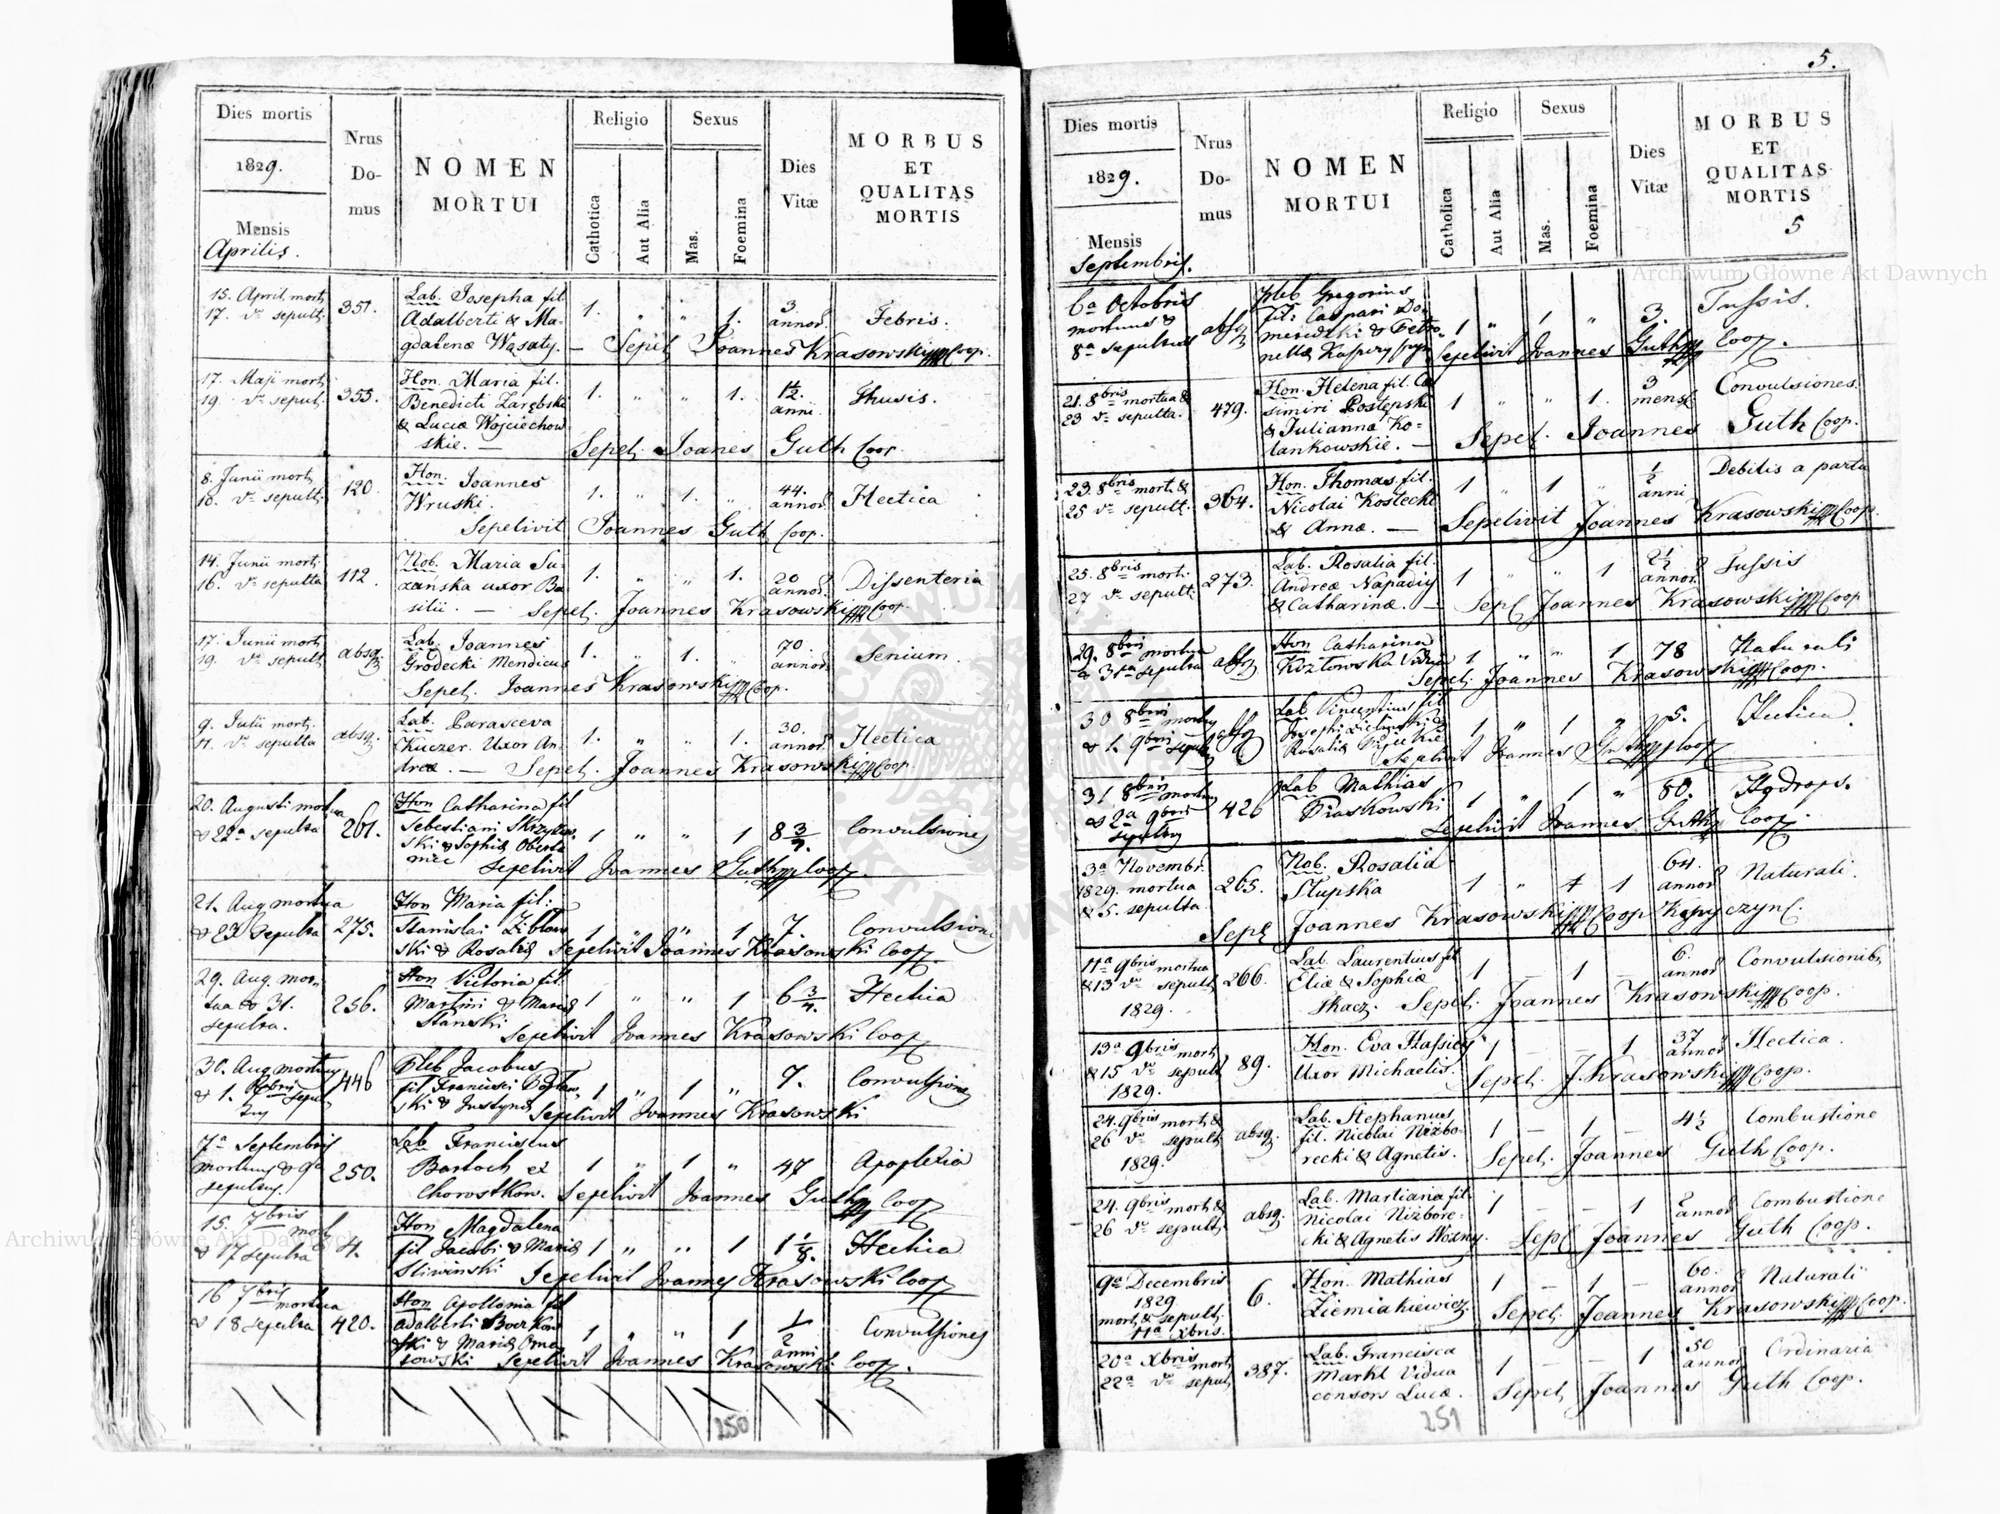 Dies mortis
1829.
Mensis
Aprilis.
Nrus
Do-
mus
NOMEN
MORTUI
Religio
Catholica
Aut Alia
Sexus
Mas.
Foemina
Dies
Vitæ
MORBUS
ET
QUALITAS
MORTIS
15. April. mort.
17. sepult.
351.
Lab. Josepha fil
Adalberti & Ma-
gdalenæ Wąsaty.
1. " " 1.
3 annor.
Febris.
Sepel Joannes Krasowski Coop.
17. Maji mort.
19. sepult.
355.
Hon. Maria fil.
Benedicti Zarębski
& Luciæ Wojciechow
skie. —
1. " " 1.
1½ anni
Thusis.
Sepel. Joanes Guth Coop.
8. Junii mort.
10. sepult.
120.
Hon. Joannes
Wruski.
1. " 1. "
44. annor.
Hectica
Sepelivit Joannes Guth Coop.
14. Junii mort.
16. sepulta
112.
Nob. Maria Su-
zańska uxor Ba
silii. —
1. " " 1.
20 annor.
Dissenteria
Sepel. Joannes Krasowski Coop.
17. Junii mort.
19. sepult.
absq
Lab. Joannes
Grodecki Mendicus
1. " 1. "
70. annor
Senium.
Sepel. Joannes Krasowski Coop.
9. Julii mort.
11. sepulta
absq.
Lab. Parasceva
Kuczer. Uxor An-
dreæ. —
1. " " 1.
30. annor.
Hectica
Sepel. Joannes Krasowski Coop.
20. Augusti mortua
& 22a sepulta
261.
Hon Catharina fil
Sebestiani
ski & Sophiæ
1 " " 1
8
Convulsiones
Sepelivit Joannes Guth Coop.
21. Aug mortua
& 23 Sepulta
275.
Hon Maria fil:
Stanislai
ski & Rosaliæ
1 " " 1
7.
Convulsiones
Sepelivit Joannes Krasowski Coop.
29. Aug. mor-
tua & 31.
sepulta.
256.
Hon Victoria fil.
Martini & Mariæ
Stanski
1 " " 1
6 3/4.
Hectica
Sepelivit Joannes Krasowski Coop
30. Aug mortuus
& 1. 7bris sepul
446
Pleb Jacobus
fil Francisci
ski & Justynæ
1 " 1 "
7.
Convulsiones
Sepelivit Joannes Krasowski
7a Septembris
mortuus & 9a
sepultus.
250.
Lab Franciscus
Bartoch ex
Chorostkow.
1 " 1 "
47
Apoplexia
Sepelivit Joannes Guth Coop
15. 7bris
& 17 Sepulta
4.
Hon Magdalena
fil Jacobi & Mariæ
Sliwinski
1 " " 1
1 1/8.
Hectica
Sepelivit Joannes Krasowski Coop
16 7bris
mortua
& 18 sepulta
420.
Hon Apollonia fil
Adalberti
ski & Mariæ
sowski
1 " " 1
1/2 anni
Convulsiones
Sepelivit Joannes Krasowski Coop.
250
5.
Dies mortis
1829.
Mensis
Septembris.
Nrus
Do-
mus
NOMEN
MORTUI
Religio
Catholica
Aut Alia
Sexus
Mas.
Foemina
Dies
Vitæ
MORBUS
ET
QUALITAS
MORTIS
5
6a Octobris
mortuus &
8a sepultus
absq
Pleb Gregorius
fil: Caspari Do-
meredzki & Petro-
nellæ
1 " 1 "
3.
Tussis.
Sepelivit Joannes Guth Coop.
21. 8bris mortua &
23 sepulta.
479.
Hon. Helena fil. Ca
simiri Postępski
& Juliannæ Ko-
lankowskie. —
1 " " 1.
3 mens.
Convulsiones.
Sepel. Joannes Guth Coop.
23. 8bris mort. &
25 sepult.
364.
Hon. Thomas fil.
Nicolai Kostecki
& Annæ. —
1 " 1 "
1/2 anni
Debilis a partu
Sepelivit Joannes Krasowski Coop.
25. 8bris mort.
27 sepult.
273.
Lab. Rosalia fil.
Andreæ Napadiy
& Catharinæ. —
1 " " 1
2½ annor.
Tussis
Sepel Joannes Krasowski Coop
29. 8bris mortua
& 31a sepulta
absq
Hon Catharina
Kozłowska Vidua
1 " " 1
78
Naturali
Sepel. Joannes Krasowski Coop.
30 8bris
& 1. 9bris
absq
Lab Vincentius fil
Josephi
Rosaliæ
1 " 1 "
5.
Hectica.
Sepelivit Joannes Guth Coop
31 8bris
& 2a 9bris
sepultus
426
Lab Mathias
Piaskowski
1 " 1 "
80.
Hydrops.
Sepelivit Joannes Guth Coop.
3a Novembr.
1829. mortua
& 5. sepulta.
265.
Nob. Rosalia
Słupska
1 " 1 1
64. annor
Naturali.
Sepel Joannes Krasowski Coop Kopyczyn.
11a 9bris mortua
& 13 sepult.
1829.
266.
Lab. Laurentius fil
Eliæ & Sophiæ
Tkacz.
1 — 1 —
6. annor
Convulsionib.
Sepel. Joannes Krasowski Coop.
13a 9bris mort.
& 15 sepult
1829.
89.
Hon. Eva
Uxor Michaelis.
1 — — 1
37 annor
Hectica.
Sepel. J. Krasowski Coop.
24. 9bris mort. &
26 sepult.
1829.
absq.
Lab. Stephanus
fil. Nicolai Niżbo-
recki & Agnetis.
1 — 1 —
4½
Combustione
Sepel. Joannes Guth Coop.
24. 9bris mort. &
26 sepult.
absq.
Lab. Martiana fil.
Nicolai Niżbore-
cki & Agnetis Wozny.
1 — — 1
2 annor
Combustione
Sepel Joannes Guth Coop.
9a Decembris
1829
mort. & sepult.
11a Xbris.
6.
Hon. Mathias
Ziemiakiewicz.
1 — 1 —
60. annor
Naturali
Sepel. Joannes Krasowski Coop.
20a Xbris mort.
22a sepult.
387.
Lab. Francisca
Markt Vidua
consors Lucæ.
1 — — 1
50 annor
Ordinaria
Sepel Joannes Guth Coop.
251
Archiwum Główne Akt Dawnych
Archiwum Główne Akt Dawnych